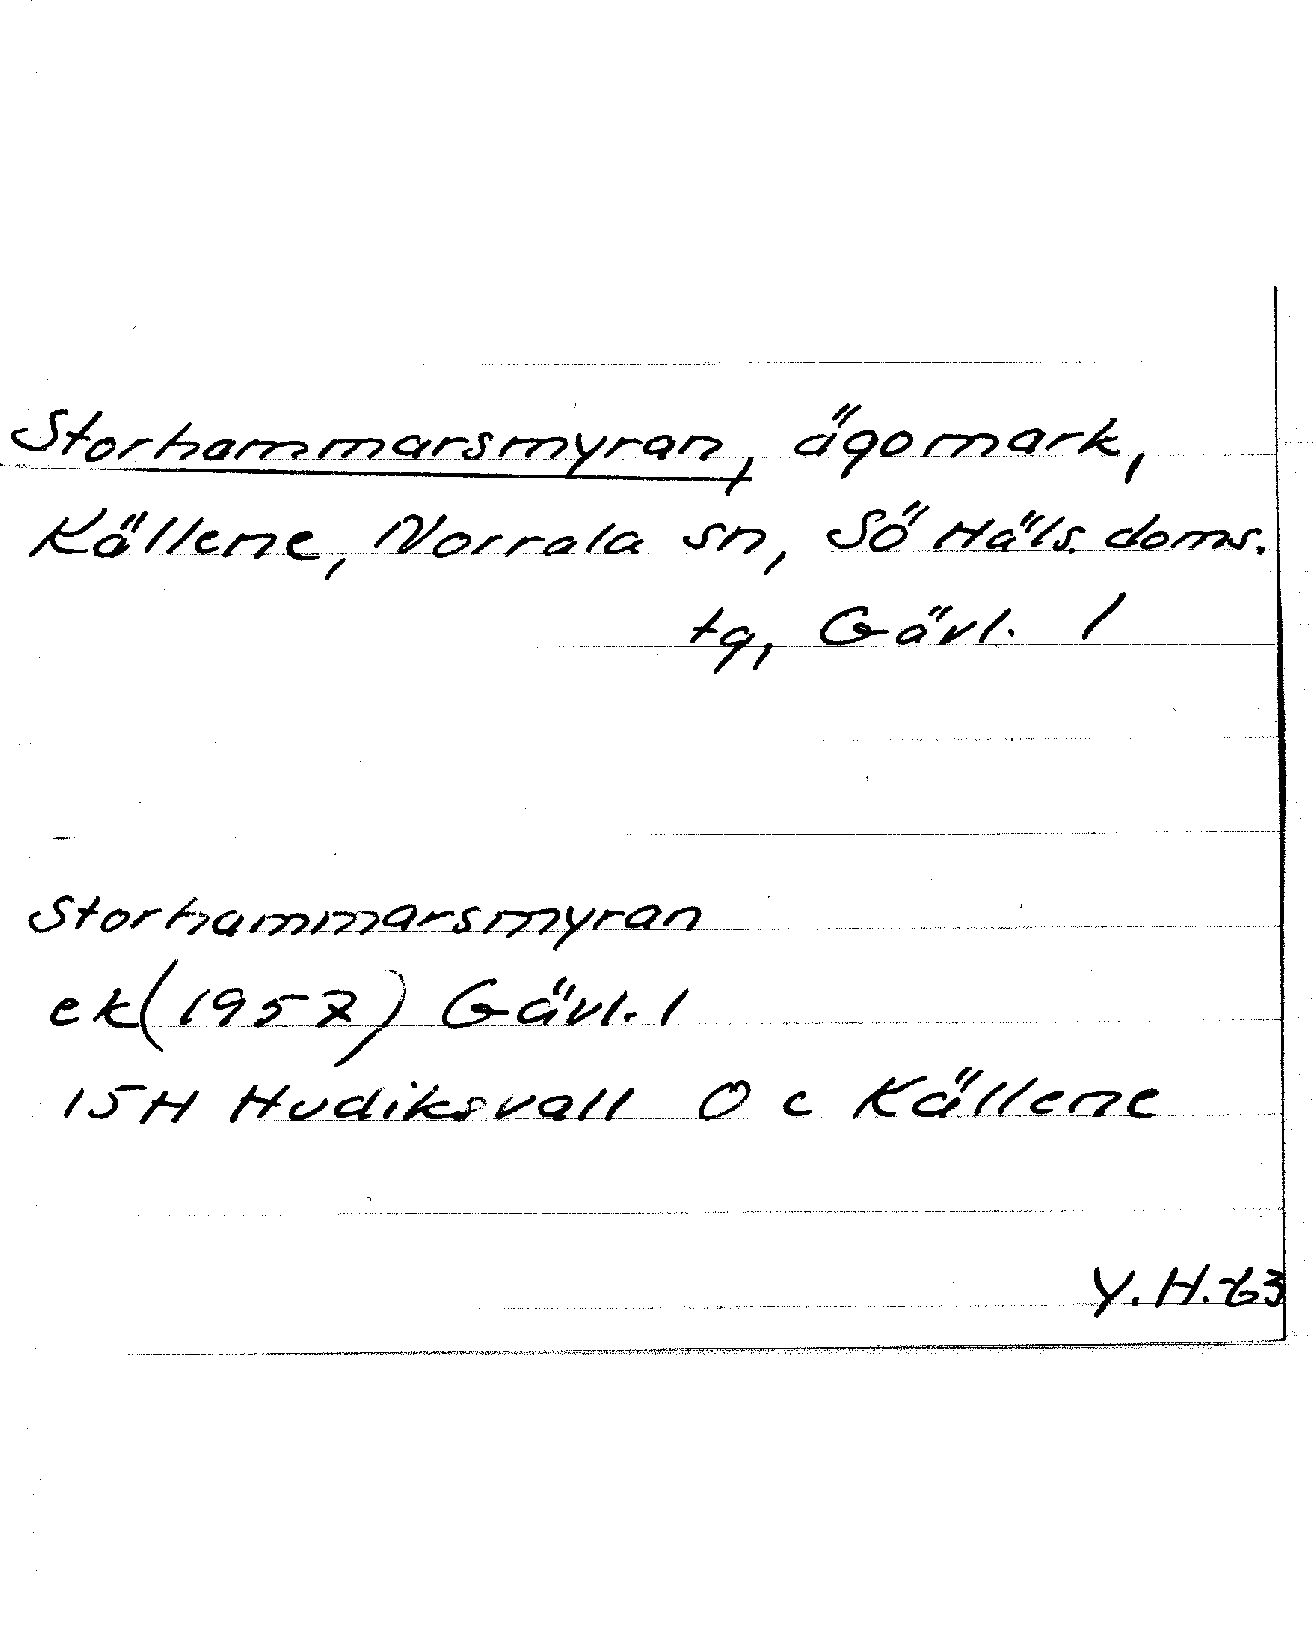 Storhammarsmyran, ägomark,
Källene, Norrala sn, Sö Häls. doms.
tg, Gävl. l
Storhammarsmyran
ek (1957) Gävl. l
15H Hudiksvall O c Källene
Y.H.-63